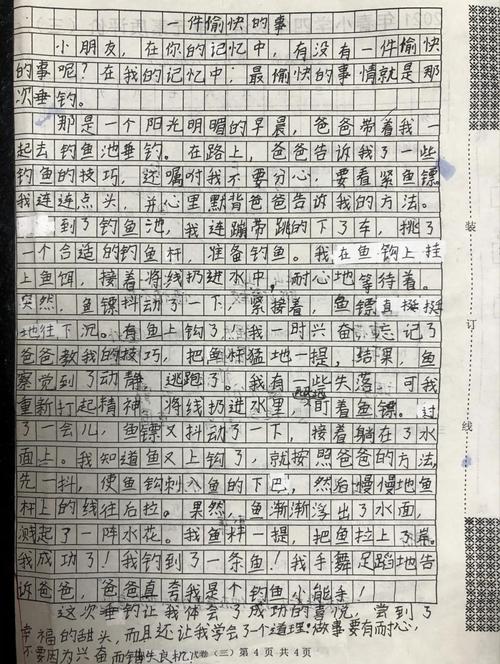 一件愉快的事
小朋友，在你的记忆中，有没有一件愉快
的事呢？在我的记忆中，最愉快的事情就是那
次垂钓。
那是一个阳光明媚的早晨，爸爸带着我一
起去钓鱼池垂钓。在路上，爸爸告诉我了一些
钓鱼的技巧，还嘱咐我不要分心，要看紧鱼镖
我连连点头，并心里默背爸爸告诉我的方法。
到了钓鱼池，我连蹦带跳的下了车，挑了
一个合适的钓鱼杆，准备钓鱼。我在鱼钩上挂
上鱼饵，接着将线扔进水中，耐心地等待着。
突然，鱼镖抖动了一下，紧接着，鱼镖直挺挺
地往下沉。有鱼上钩了！我一时兴奋，忘记了
爸爸教我的技巧，把鱼杆猛地一提，结果，鱼
察觉到了动静，逃跑了。我有一些失落，可我
重新打起精神，将线扔进水里，盯着鱼镖。过
了一会儿，鱼镖又抖动了一下，接着躺在了水
面上。我知道鱼又上钩了，就按照爸爸的方法，
先一抖，使鱼钩刺入鱼的下巴，然后慢慢地鱼
杆上的线往后拉。果然，鱼渐渐浮出了水面，
溅起了一阵水花。我鱼杆一提，把鱼拉上了岸。
我成功了！我钓到了一条鱼！我手舞足蹈地告
诉爸爸，爸爸直夸我是个钓鱼小能手！
这次垂钓让我体会了成功的喜悦，尝到了
幸福的甜头，而且还让我学会了个道理：做事要有耐心，
不要因为兴奋而错失良机！
卷（三）第4页共4页
装
订
线